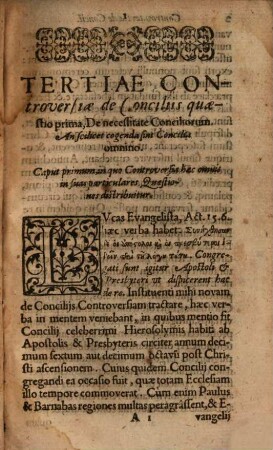 TERTIAE CON-
troversiæ de Conciliis quæ-
stio prima, De necessitate Conciliorum.
An scilicet cogenda sint Concilia
omnino.
Caput primum, in quo Controversia hæc omnis
in suas particulares Questio-
nes distribuitur.
LVcas Evangelista, Act. 15.6.
hæc verba habet: Συνήχθησαν
δὲ οἱ ἀπόστολοι καὶ οἱ πρεσβύτεροι
ἰδεῖν περὶ τοῦ λόγου τούτου. Congre-
gati sunt igitur Apostoli &
Presbyteri ut dispicerent hac
de re. Instituenti mihi novam,
de Concilijs Controversiam tractare, hæc ver-
ba in mentem venebant, in quibus mentio fit
Concilij celeberrimi Hierosolymis habiti ab
Apostolis & Presbyteris circiter annum deci-
mum sextum aut decimum octavũ post Chri-
sti ascensionem. Cuius quidem Concilij con-
gregandi ea occasio fuit, quæ totam Ecclesiam
illo tempore commoverat. Cum enim Paulus
& Barnabas regiones multas peragrassent, & E-
A 1 vangelij